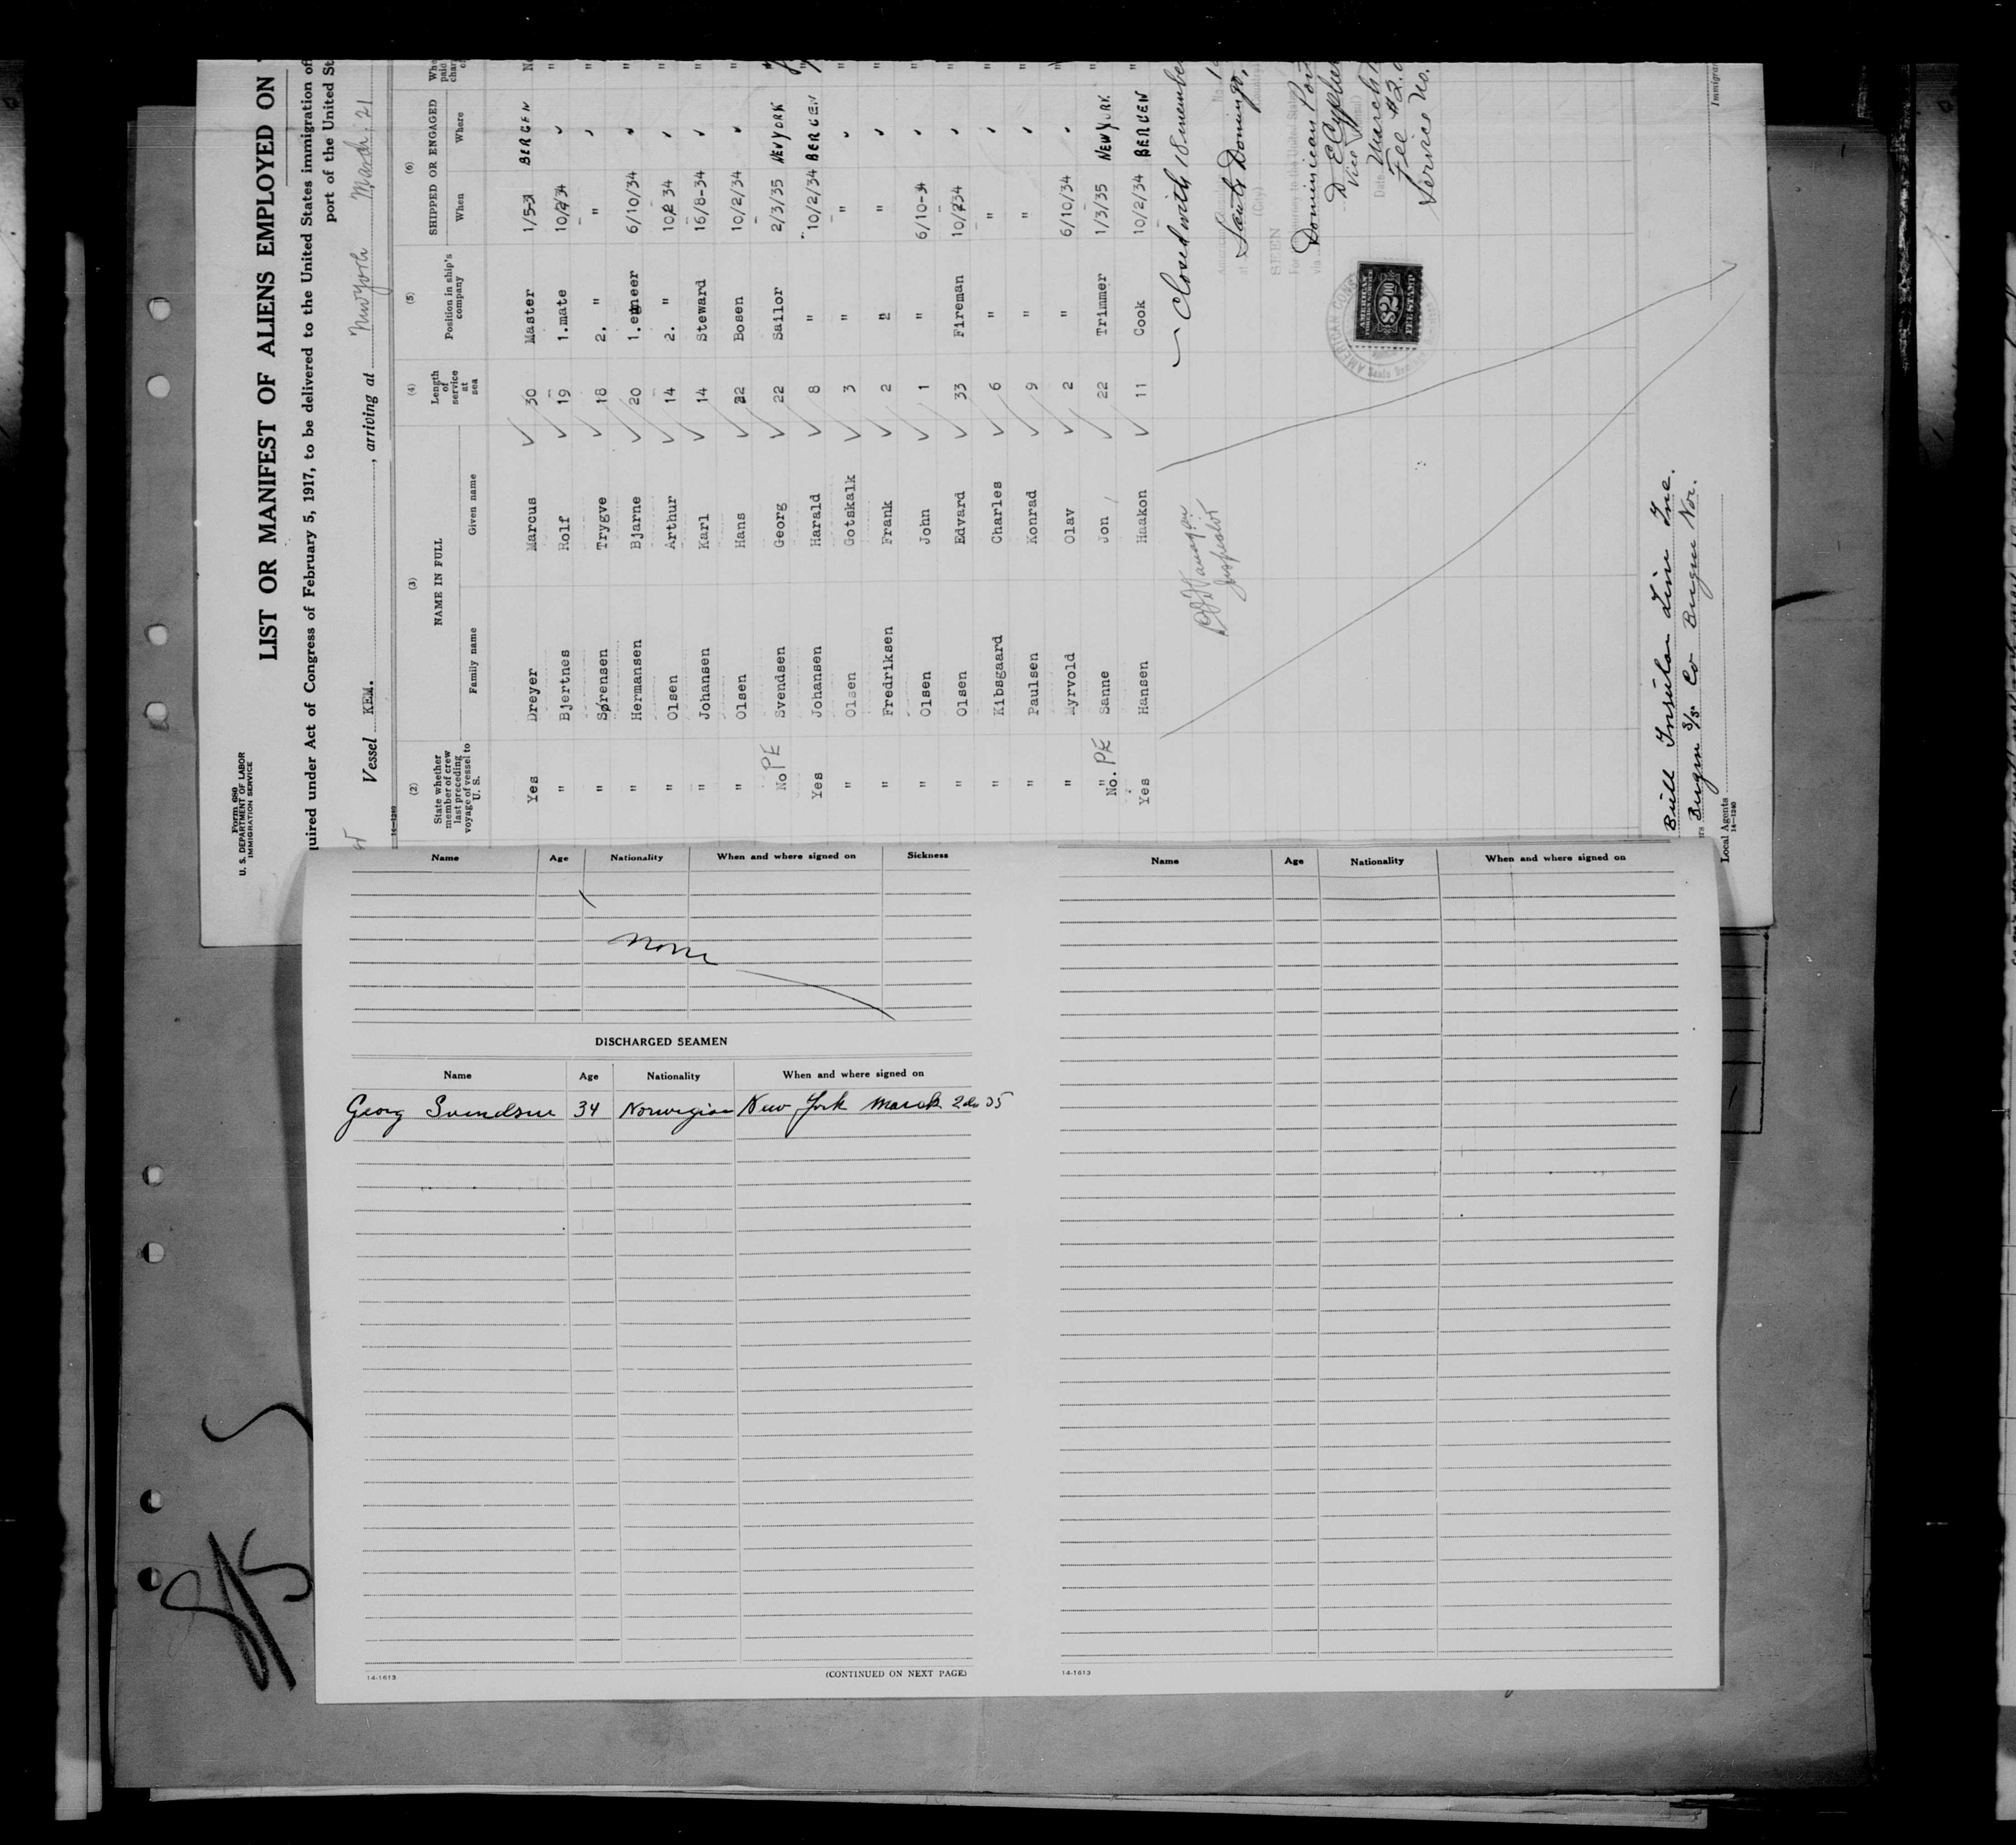 Form 680
U. S. DEPARTMENT OF LABOR
IMMIGRATION SERVICE
LIST OR MANIFEST OF ALIENS EMPLOYED ON
quired under Act of Congress of February 5, 1917, to be delivered to the United States immigration of
port of the United St
Vessel KEM. , arriving at New York March 21
14-1240
(2) (3) (4) (5) (6)
State whether member of crew last preceding voyage of vessel to U. S. NAME IN FULL Length of service at sea Position in ship's company SHIPPED OR ENGAGED
Family name Given name When Where
Yes Dreyer Marcus 30 Master 1/5-31 BERGEN
" Bjertnes Rolf 19 1.mate 10/2/34 "
" Sørensen Trygve 18 2. " " "
" Hermansen Bjarne 20 1. 6/10/34 "
" Olsen Arthur 14 2. " 10/2 34 "
" Johansen Karl 14 Steward 16/8-34 "
" Olsen Hans 22 Bosen 10/2/34 "
No PE Svendsen Georg 22 Sailor 2/3/35 NEW YORK
Yes Johansen Harald 8 " 10/2/34 BERGEN
" Olsen Gotskalk 3 " " "
" Fredriksen Frank 2 " " "
" Olsen John 1 " 6/10-34 "
" Olsen Edvard 33 Fireman 10/2 34 "
" Kibsgaard Charles 6 " " "
" Paulsen Konrad 9 " " "
" Myrvold Olav 2 " 6/10/34 "
No. PE Sanne Jon 22 Trimmer 1/3/35 NEW YORK
Yes Hansen Haakon 11 Cook 10/2/34 BERGEN
Closed with 18 member
Santo Domingo,
SEEN
Dominican Por
Vice
March
Fee $2.0
Service No.
AMERICAN CONS
$2.00
FEE STAMP
Inspector
Bull Insular Line Inc.
Bergen S/S Co Bergen Nor.
Local Agents
14-1240
Immigran
Name Age Nationality When and where signed on Sickness
None
DISCHARGED SEAMEN
Name Age Nationality When and where signed on
Georg Svendsen 34 Norwegian New York March 2 35
14-1613
(CONTINUED ON NEXT PAGE)
Name Age Nationality When and where signed on
14-1613